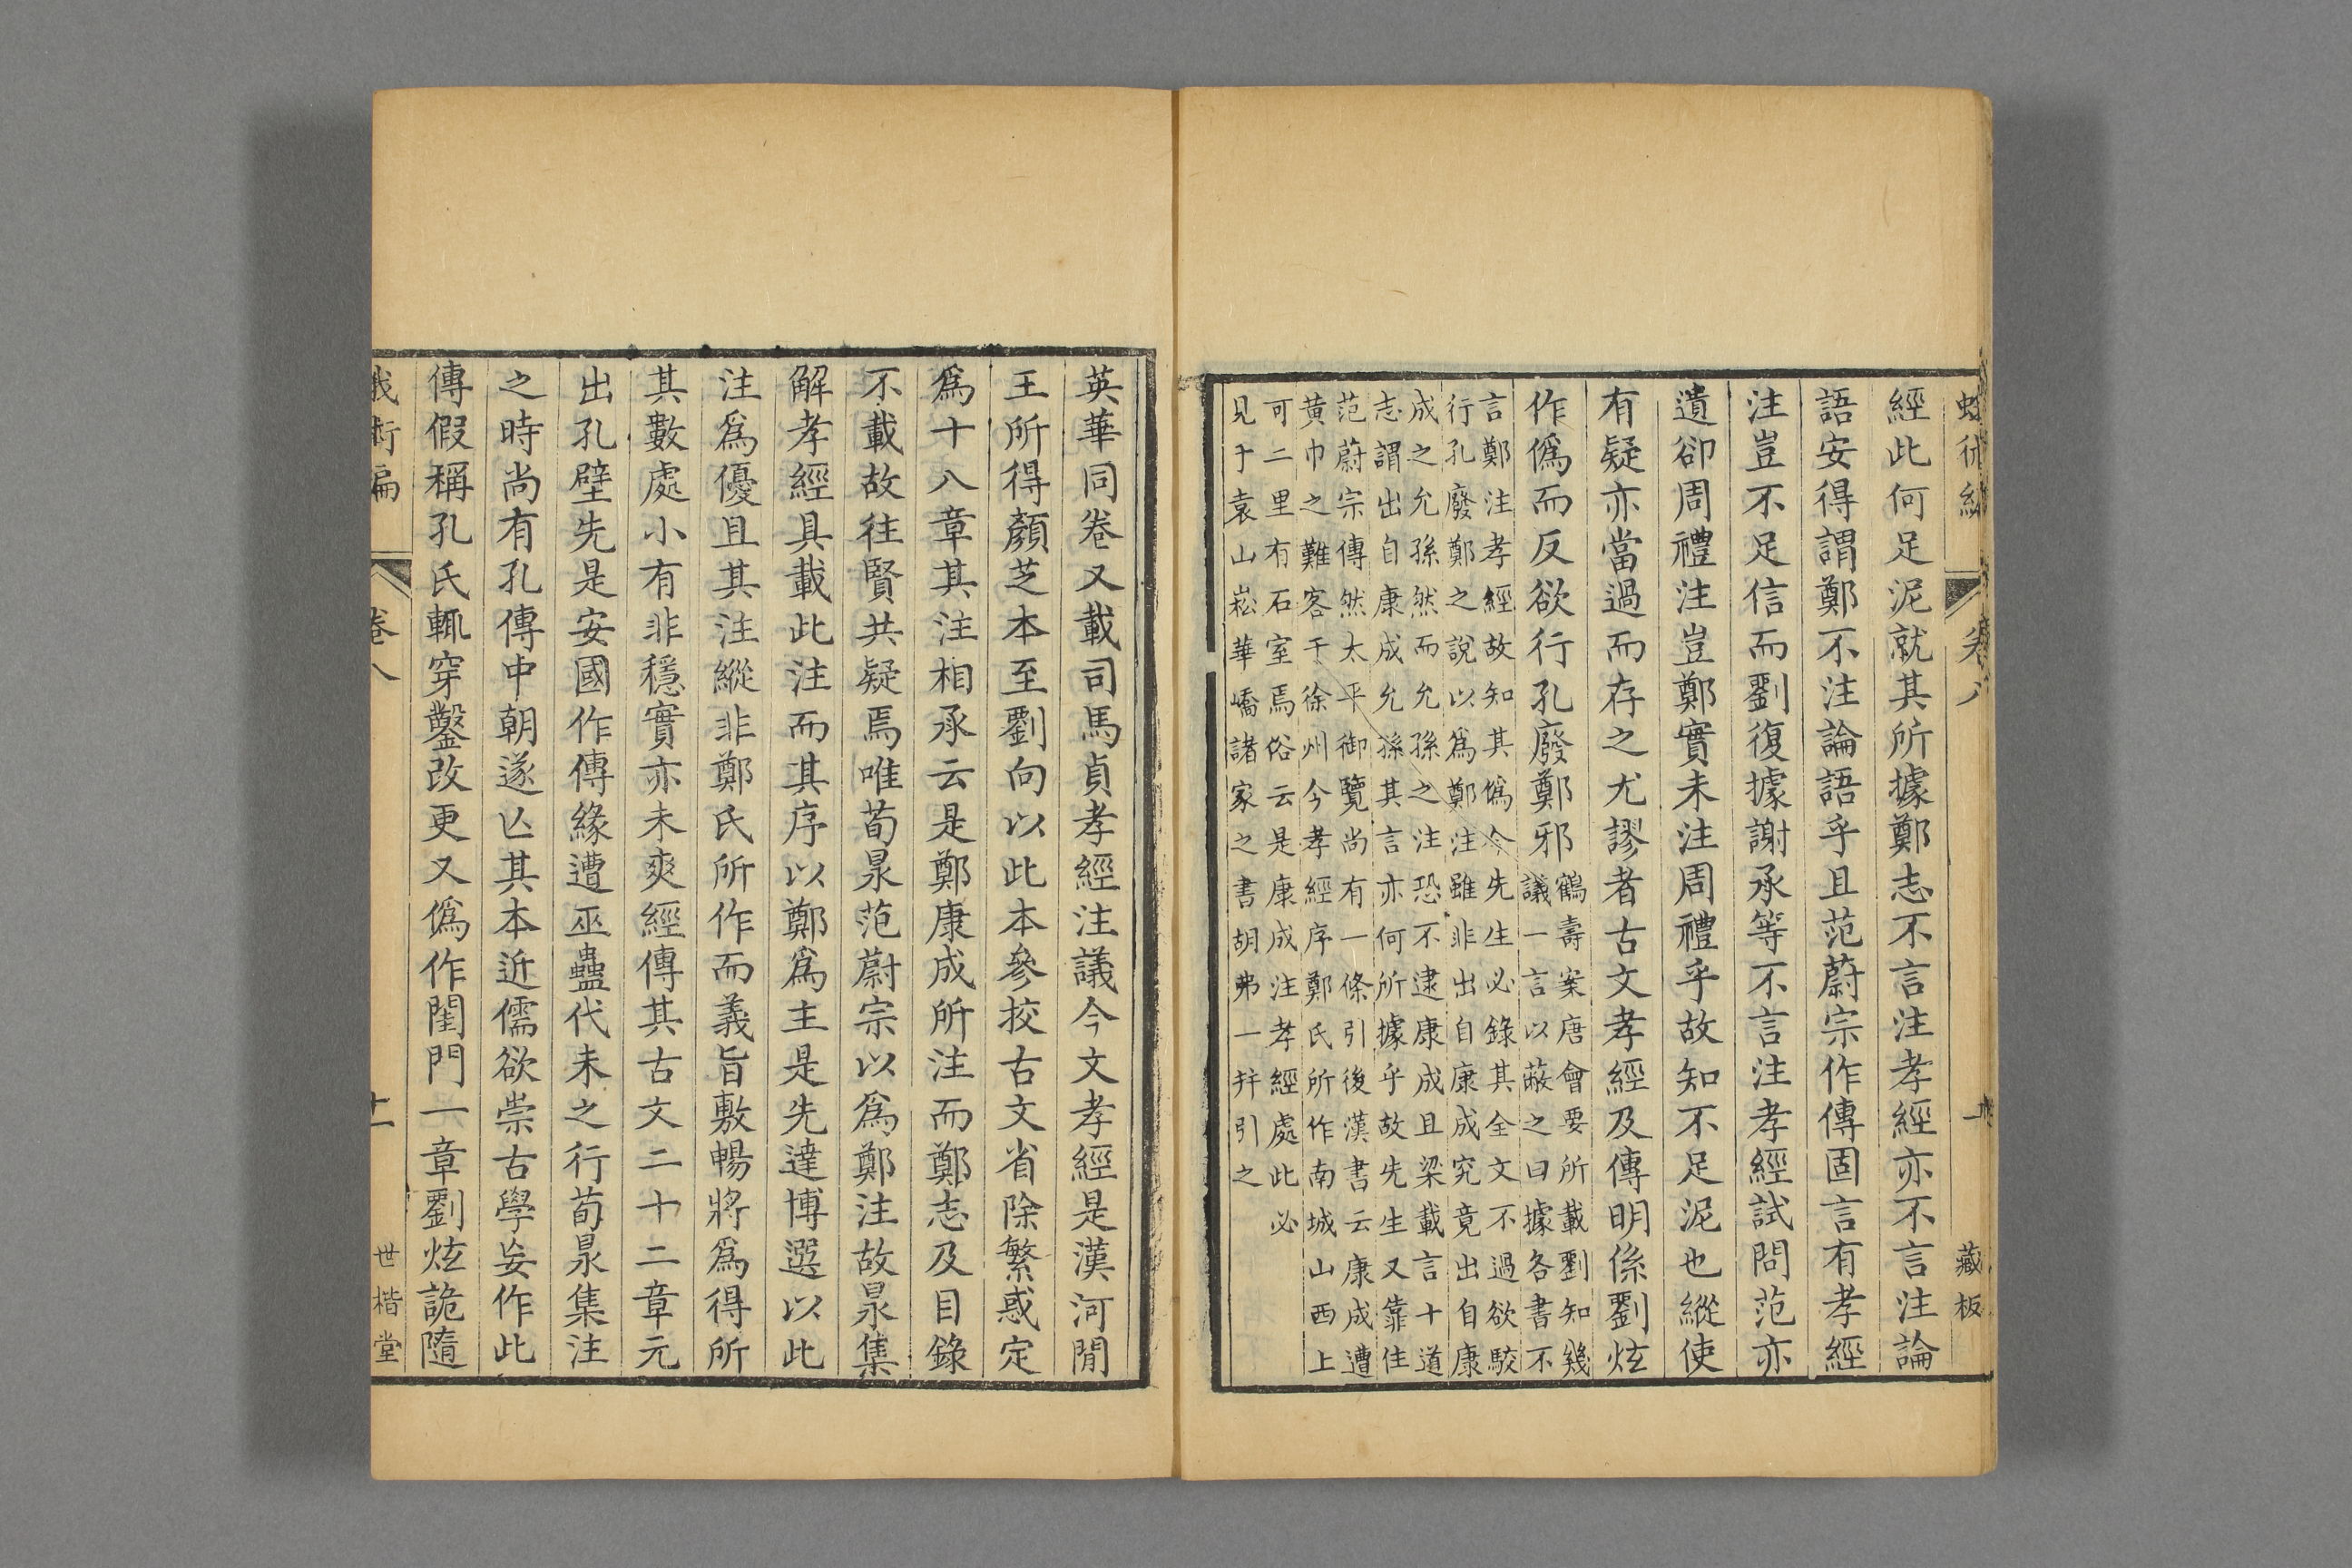 蛾術編 卷八 藏板
經此何足泥就其所據鄭志不言注孝經亦不言注論
語安得謂鄭不注論語乎且范蔚宗作傳固言有孝經
注豈不足信而劉復據謝承等不言注孝經試問范亦
遺卻周禮注豈鄭實未注周禮乎故知不足泥也縱使
有疑亦當過而存之尤謬者古文孝經及傳明係劉炫
作僞而反欲行孔廢鄭邪
鶴壽案唐會要所載劉知幾
議一言以蔽之曰據各書不
言鄭注孝經故知其僞今先生必錄其全文不過欲駮
行孔廢鄭之說以爲鄭注雖非出自康成究竟出自康
成之允孫然而允孫之注恐不逮康成且梁載言十道
志謂出自康成允孫其言亦何所據乎故先生又靠住
范蔚宗傳然太平御覽尚有一條引後漢書云康成遭
黃巾之難客于徐州今孝經序鄭氏所作南城山西上
可二里有石室焉俗云是康成注孝經處此必
見于袁山崧華嶠諸家之書胡弗一幷引之
英華同卷又載司馬貞孝經注議今文孝經是漢河閒
王所得顏芝本至劉向以此本參挍古文省除繁惑定
爲十八章其注相承云是鄭康成所注而鄭志及目錄
不載故往賢共疑焉唯荀㫤范蔚宗以爲鄭注故㫤集
解孝經具載此注而其序以鄭爲主是先達博選以此
注爲優且其注縱非鄭氏所作而義旨敷暢將爲得所
其數處小有非穩實亦未爽經傳其古文二十二章元
出孔壁先是安國作傳緣遭巫蠱代未之行荀㫤集注
之時尚有孔傳中朝遂亾其本近儒欲崇古學妄作此
傳假稱孔氏輒穿鑿改更又僞作閨門一章劉炫詭隨
蛾術編 卷八 世楷堂